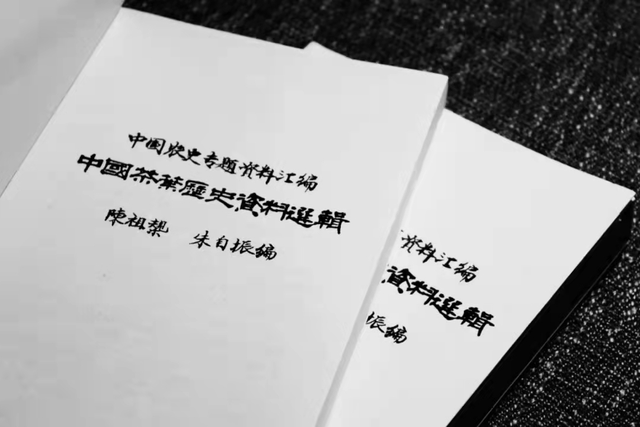 中国农史专题资料汇编
中國茶葉歷史資料選輯
陳祖槼 朱自振编
资料汇编
資料選輯
振编